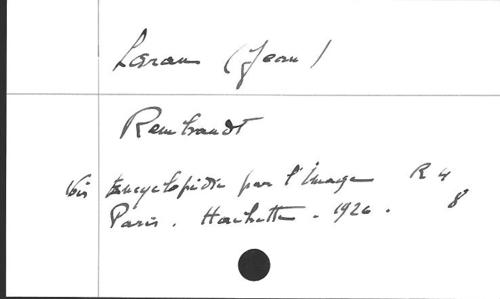 Laran (Jean)
Rembrandt
Voir Encyclopédie par l'Image R 4
Paris. Hachette. 1926. 8